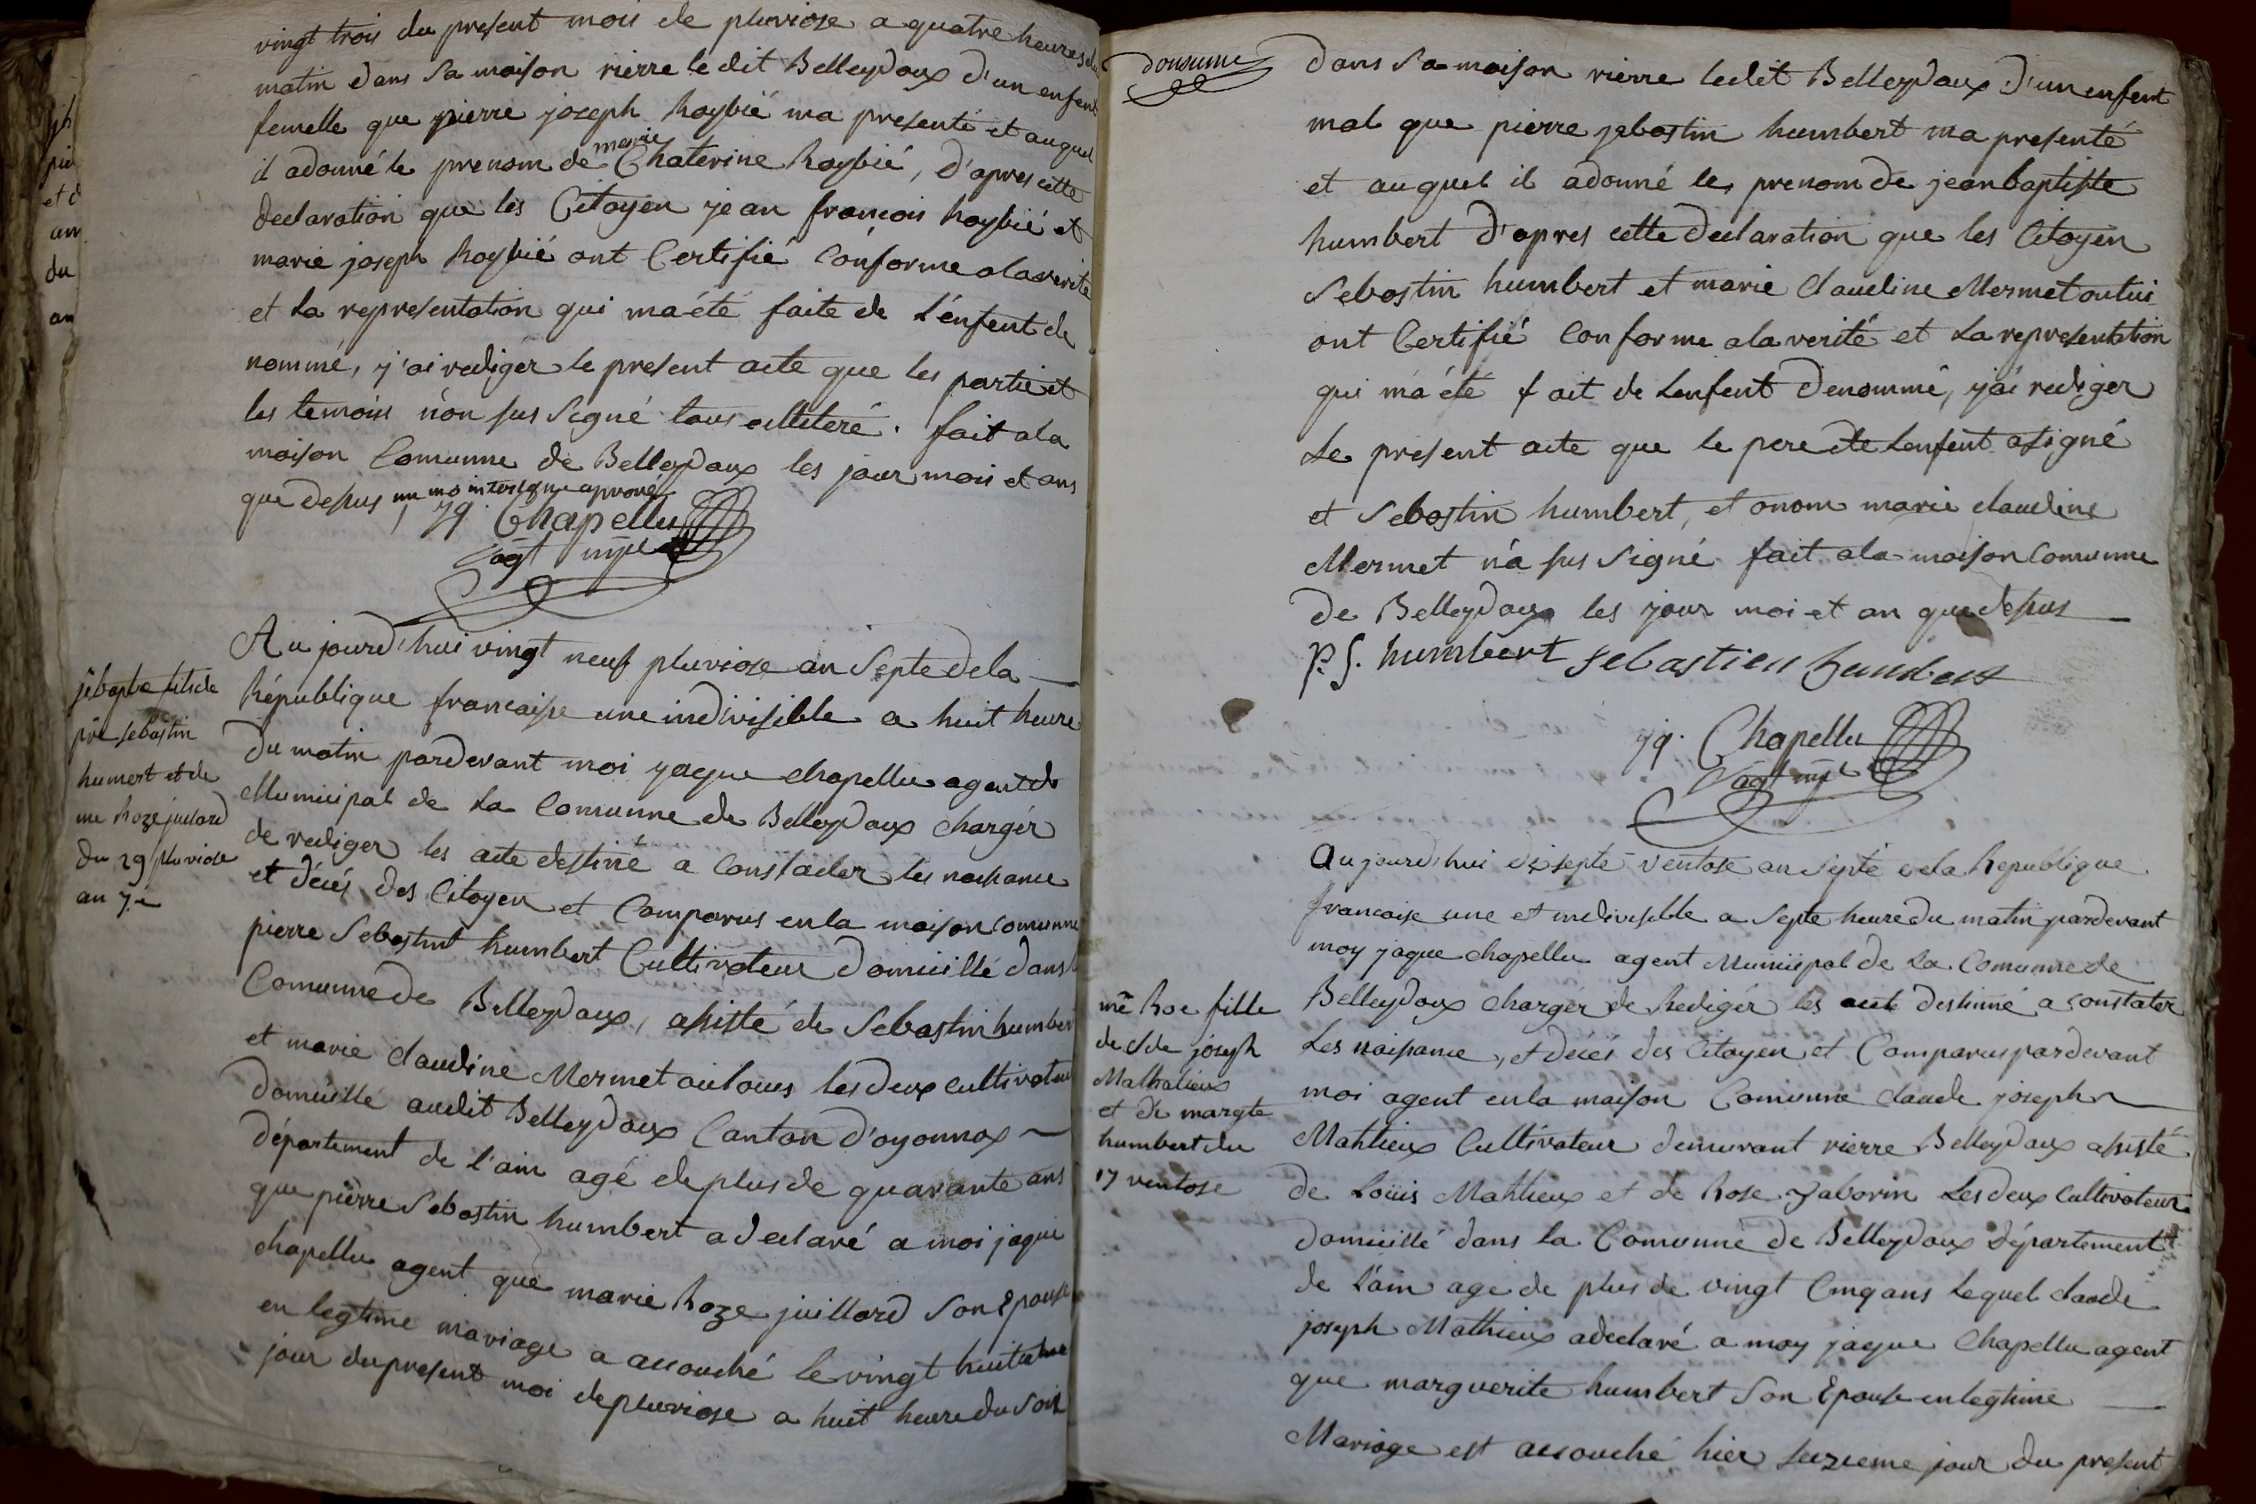 vingt trois du present mois de pluviose a quatre heures du
matin dans sa maison rierre le dit Belleydoux d'un enfent
femelle que pierre joseph hoybié ma presenté et auquel
il adonné le prenom de marie Chaterine hoybié, d'apres cette
declaration que les Citoyen jean francois hoybié et
marie joseph hoybié ont Certifié Conforme a la verité
et la representation qui ma été faite de l'énfent de
nommé, j'ai rediger le present acte que les partie et
les temoins n'on sus signé tous illiteré. fait a la
maison Comunne de Belleydoux les jour mois et ans
que desus, un mo interligne aprouvé
jq. Chapellu
agt mpl
Aujourd'hui vingt neuf pluviose an Septe de la
République francaisse une indivisible a huit heure
du matin pardevant moi jaque chapellu agent
Municipal de la Comunne de Belleydoux chargér
de rediger les acte destiné a Constater les naissance
et décés des Citoyen et Comparus en la maison comunne
pierre Sebostint humbert Cultivateur domicillé dans
Comunne de Belleydoux, asisté de Sebastin humber
et marie claudine Mermet les deux cultivateu
domicillé audit Belleydoux Canton d'oyonnax
département de l'ain agé de plus de quarante ans
que pierre Sebostin humbert a declaré a moi jaque
chapellu agent que marie Roze juillard son Epouse
en legtime mariage a accouché le vingt huit
jour du present moi de pluviose a huit heure du soir
jn bapte fils de
pre sebastin
humert et de
me Roze juilard
du 29 pluviose
an 7e
dans sa maison rierre ledit Belleydoux d'un enfent
mal que pierre sebostin humbert ma presenté
et auquel il adonné les prenom de jean baptiste
humbert d'apres cette declaration que les Citoyen
Sebostin humbert et marie claudine Mermet
ont Certifié Conforme a la verité et la representation
qui m'a été fait de lenfent denommé, j'ai rediger
le present acte que le pere de lenfent a signé
et Sebostin humbert, et marie claudine
Mermet n'a sus signé fait a la maison Comunne
de Belleydoux les jour moi et an que desus
P. S. humbert sebastien humbert
jq. Chapellu
agt mpl
Aujourd'hui disepte ventose an septe de la Republique
francaise une et indivisible a septe heure du matin pardevant
moy jaque chapellu agent Municipal de la Comunne de
Belleydoux chargér de Redigér les acte destinné a constater
les naissance, et décés des Citoyen et Comparus pardevant
moi agent en la maison Comunne claude joseph
Mahtieux Cultivateur demurant rierre Belleydoux asisté
de Loüis Mahtieux et de Rose les deux Cultivateur
domicillé dans la Comunne de Belleydoux département
de l'ain age de plus de vingt Cinq ans lequel claude
joseph Mathieux a declaré a moy jaque Chapellu agent
que marguerite humbert son Epouse en legtime
Mariage est accouché hier seizieme jour du present
me Roe fille
de Cde joseph
et de margte
humbert du
17 ventose